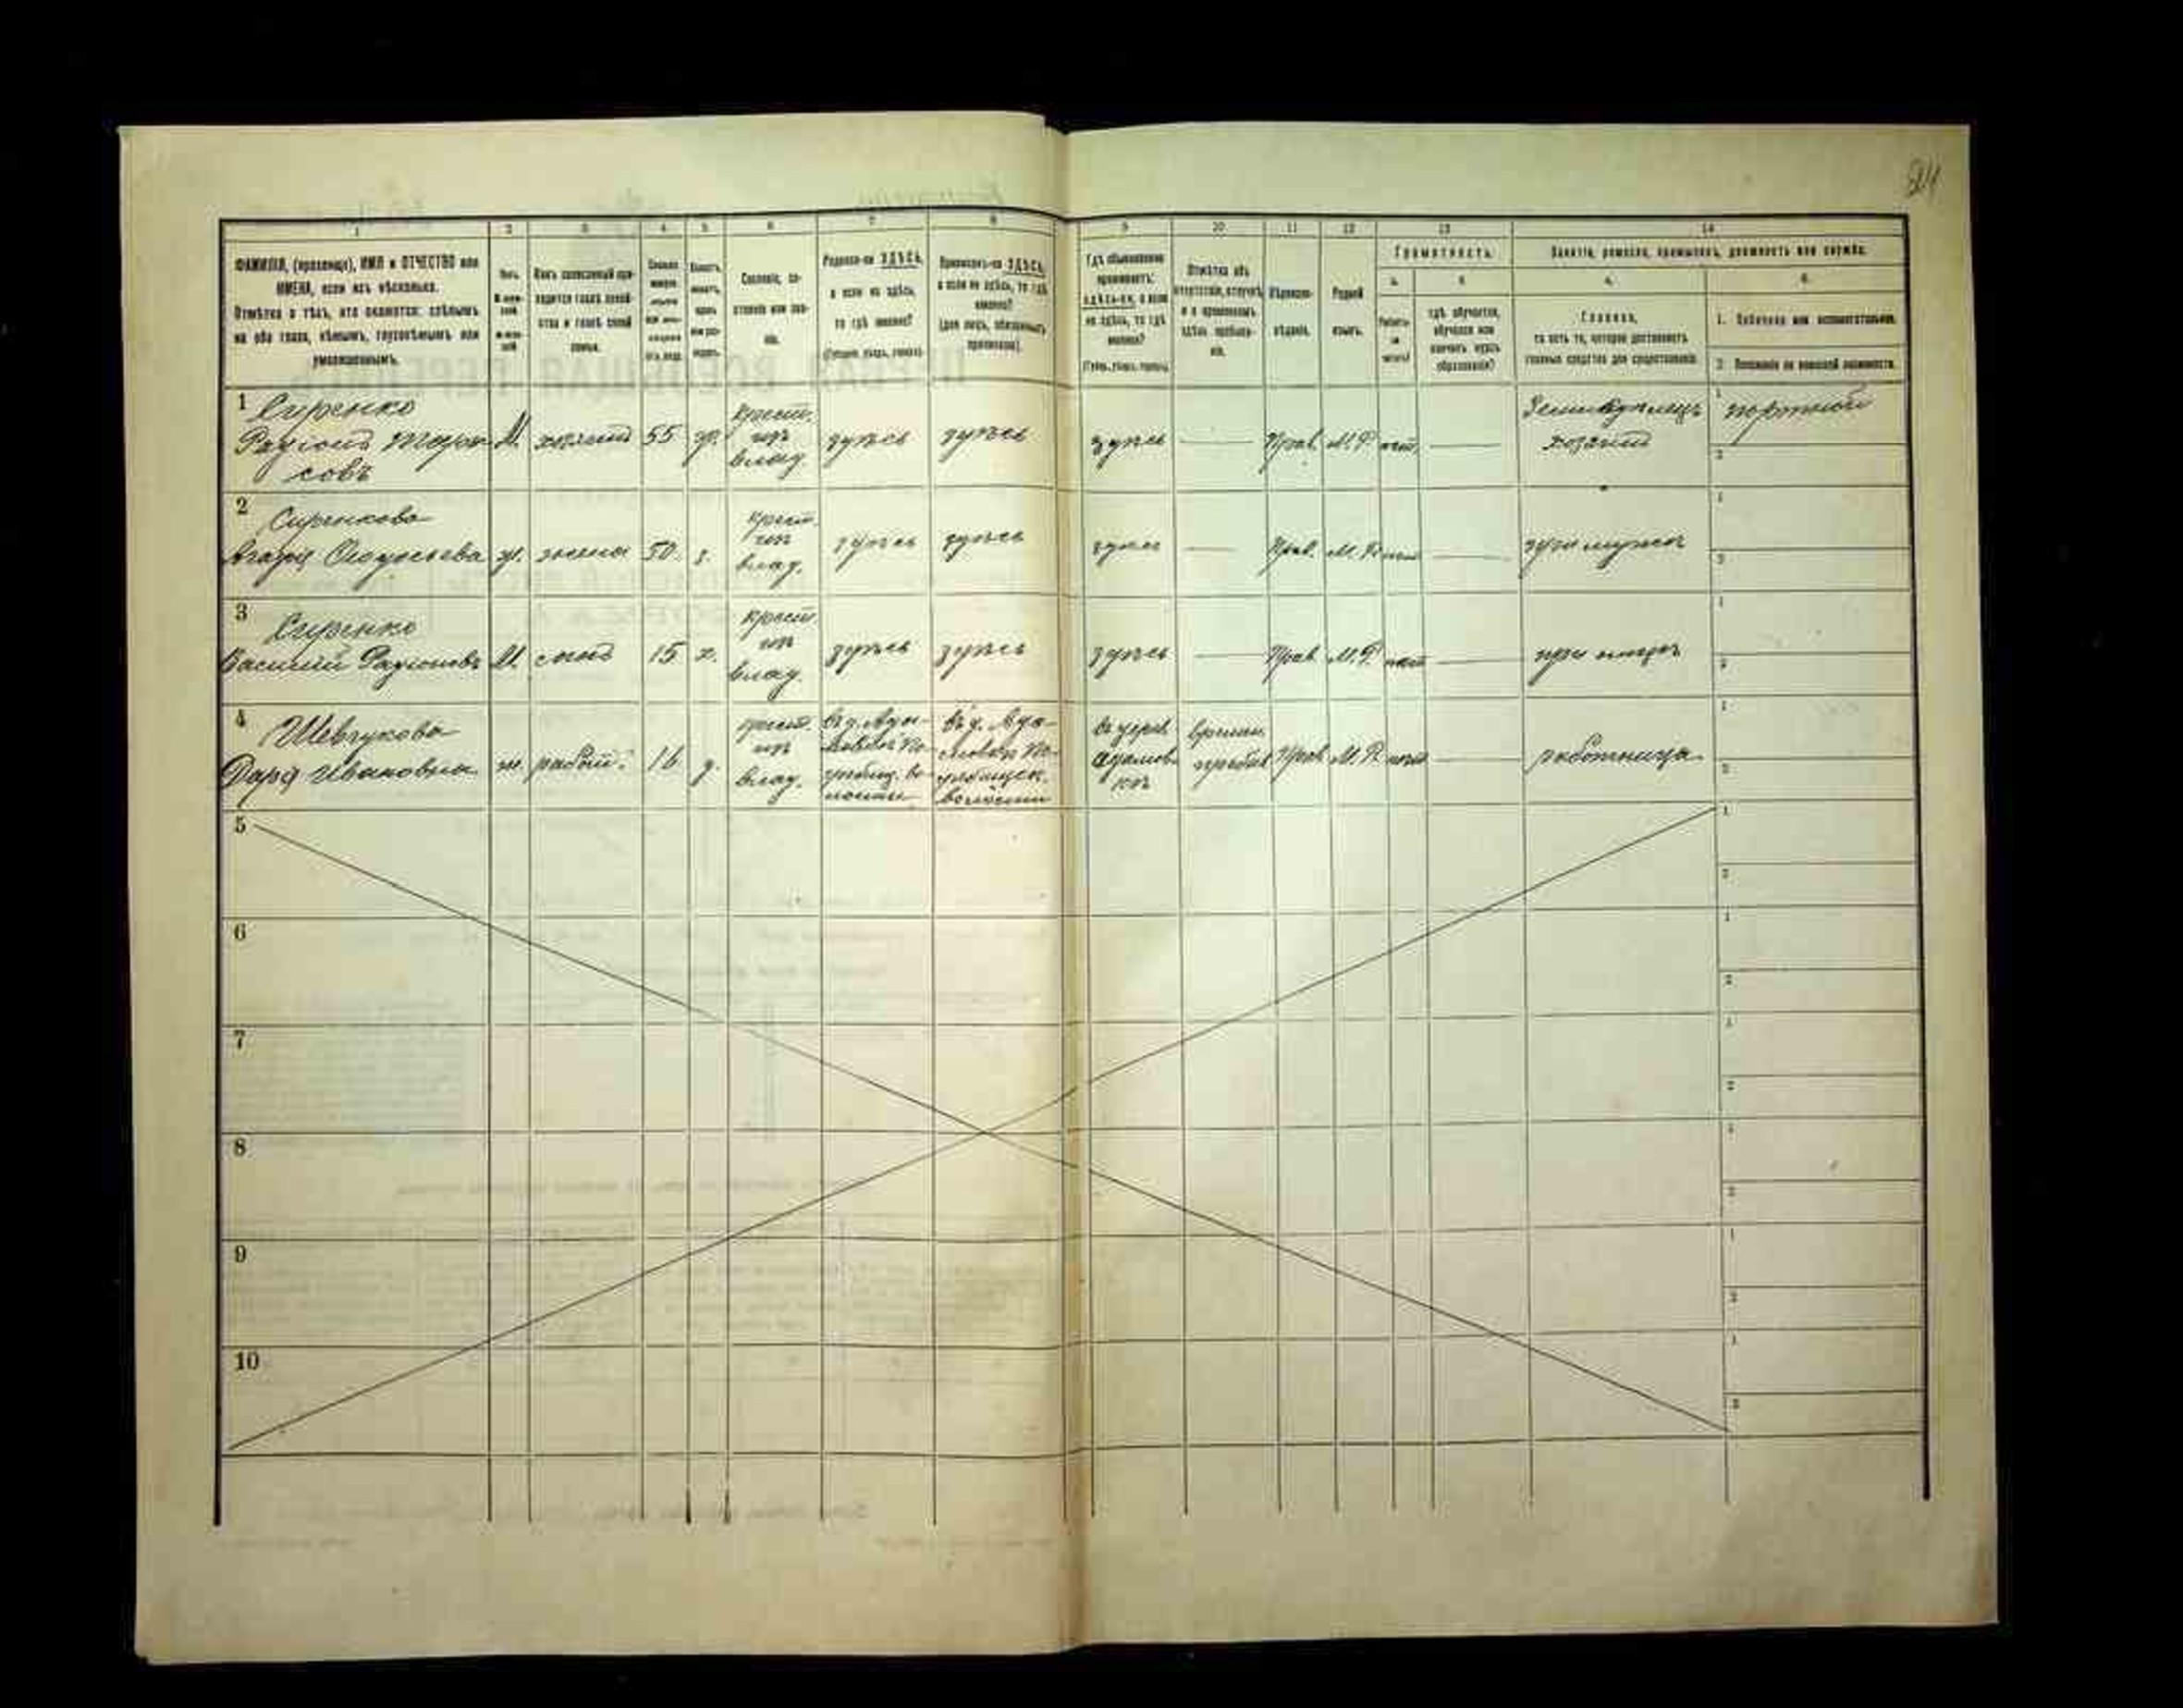 24
1 2 3 4 5 6 7 8 9 10 11 12 13 14
ФАМИЛІЯ, (прозвище), ИМЯ и ОТЧЕСТВО или
ИМЕНА, если ихъ нѣсколько.
Отмѣтка о тѣхъ, кто окажется: слѣпымъ
на оба глаза, нѣмымъ, глухонѣмымъ или
умалишеннымъ.
Полъ.
Какъ записанный при-
ходится главѣ хозяй-
ства и главѣ своей
семьи.
Сословіе, со-
стояніе или зва-
ніе.
Родился-ли ЗДѢСЬ,
а если не здѣсь,
то гдѣ именно?
(Губернія, уѣздъ, городъ).
Приписанъ-ли ЗДѢСЬ,
а если не здѣсь, то гдѣ
именно?
(для лицъ, обязанныхъ
припискою).
Гдѣ обыкновенно
проживаетъ:
ЗДѢСЬ-ЛИ, а если
не здѣсь, то гдѣ
именно?
(Губер., уѣздъ, городъ).
Отмѣтка объ
отсутствіи, отлучкѣ
и о временномъ
здѣсь пребыва-
ніи.
Вѣроиспо-
вѣданіе.
Родной
языкъ.
Грамотность.
а. б.
Умѣетъ-
ли
читать?
гдѣ обучается,
обучался или
кончилъ курсъ
образованія?
Занятіе, ремесло, промыселъ, должность или служба.
а. б.
Главное,
то есть то, которое доставляетъ
главныя средства для существованія.
1. Побочное или вспомогательное.
2. Положеніе по воинской повинности.
1 Сиренко
Радіонъ Тара
совъ
М. хозяинъ 55 ж. крест. изъ влад. здѣсь здѣсь здѣсь — Прав. М.Р. нѣт. — хозяинъ
1 портной
2
2 Сиренкова
Агафія Феодосьева ж. жена 50 з. крест. изъ влад. здѣсь здѣсь здѣсь — Прав. М.Р. нѣт — при мужѣ
1
2
3 Сиренко
Василій Радіоновъ М. сынъ 15 х. крест. изъ влад. здѣсь здѣсь здѣсь — Прав. М.Р. нѣт — при отцѣ
1
2
4 Шевчукова
Дарія Ивановна ж. работ. 16 д. крест. изъ влад.
въ д. Ада-
волости
въ д. Ада-
мовкѣ
волости
въ дерев.
Адамов
кѣ
времен.
пребыв
Прав М.Р. нѣт — работница
1
2
5
1
2
6
1
2
7
1
2
8
1
2
9
1
2
10
1
2